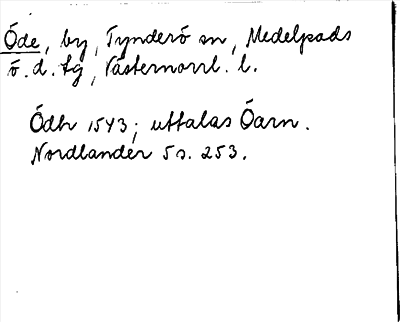 Öde, by, Tynderö sn, Medelpads
ö. d. tg, Västernorrl. l.
Ödh 1543; uttalas Öarn.
Nordlander 5 s. 253.